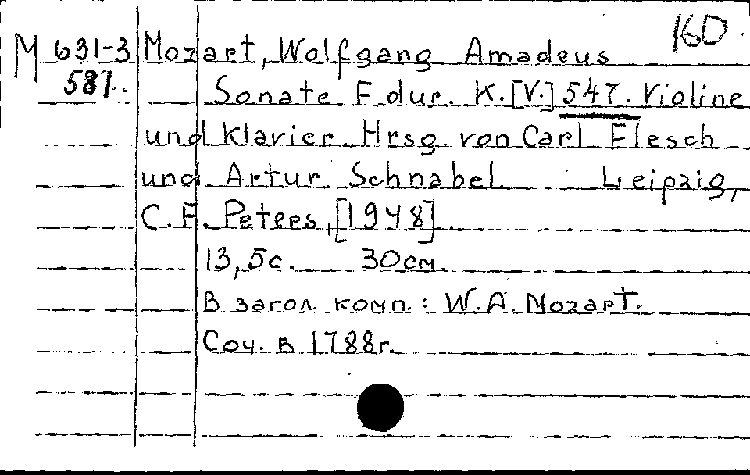 160
M 631-3 Mozart, Wolfgang Amadeus
587. Sonate F dur. K.[V.] 547. Violine
und Klavier. Hrsg. von Carl Flesch
und Artur Schnabel. Leipzig,
C. F. Peters, [1948]
13,5с. 30см.
В загол. комп.: W. A. Mozart.
Соч. в 1788г.